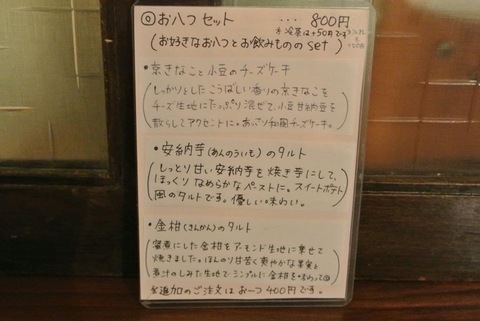 ◎お八つセット ・・・ 800円
※冷茶は+50円です
(お好きなお八つとお飲みもののset)
・京きなこと小豆のチーズケーキ
(しっかりとしたこうばしい香りの京きなこを
チーズ生地にたっぷり混ぜて、小豆甘納豆を
散らしてアクセントに。あっさり和風チーズケーキ。)
・安納芋(あんのういも)のタルト
(しっとり甘い安納芋を焼き芋にして、
ほっくりなめらかなペーストに。スイートポテト
風のタルトです。優しい味わい。)
・金柑(きんかん)のタルト
(蜜煮にした金柑をアーモンド生地に乗せて
焼きました。ほんのり甘苦く爽やかな果実と
煮汁のしみた生地でシンプルに金柑を味わって)
※追加のご注文はお一つ400円です。